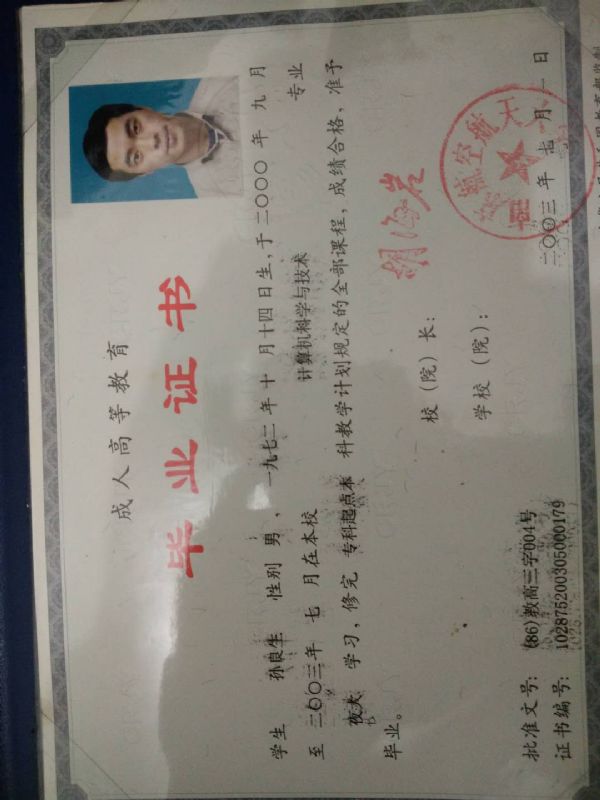 成人高等教育
毕业证书
学生 孙良生 性别 男， 一九七二年 十 月十四日生，于二〇〇〇 年 九 月
至 二〇〇三年 七 月在本校 计算机科学与技术 专业
夜大 学习，修完 专科起点本 科教学计划规定的全部课程，成绩合格，准予
毕业。
校（院）长：
胡海岩
学校（院）：
批准文号：(86)教高三字004号
证书编号：102875200305000179
二〇〇三 年 七 月 一 日
航空航天